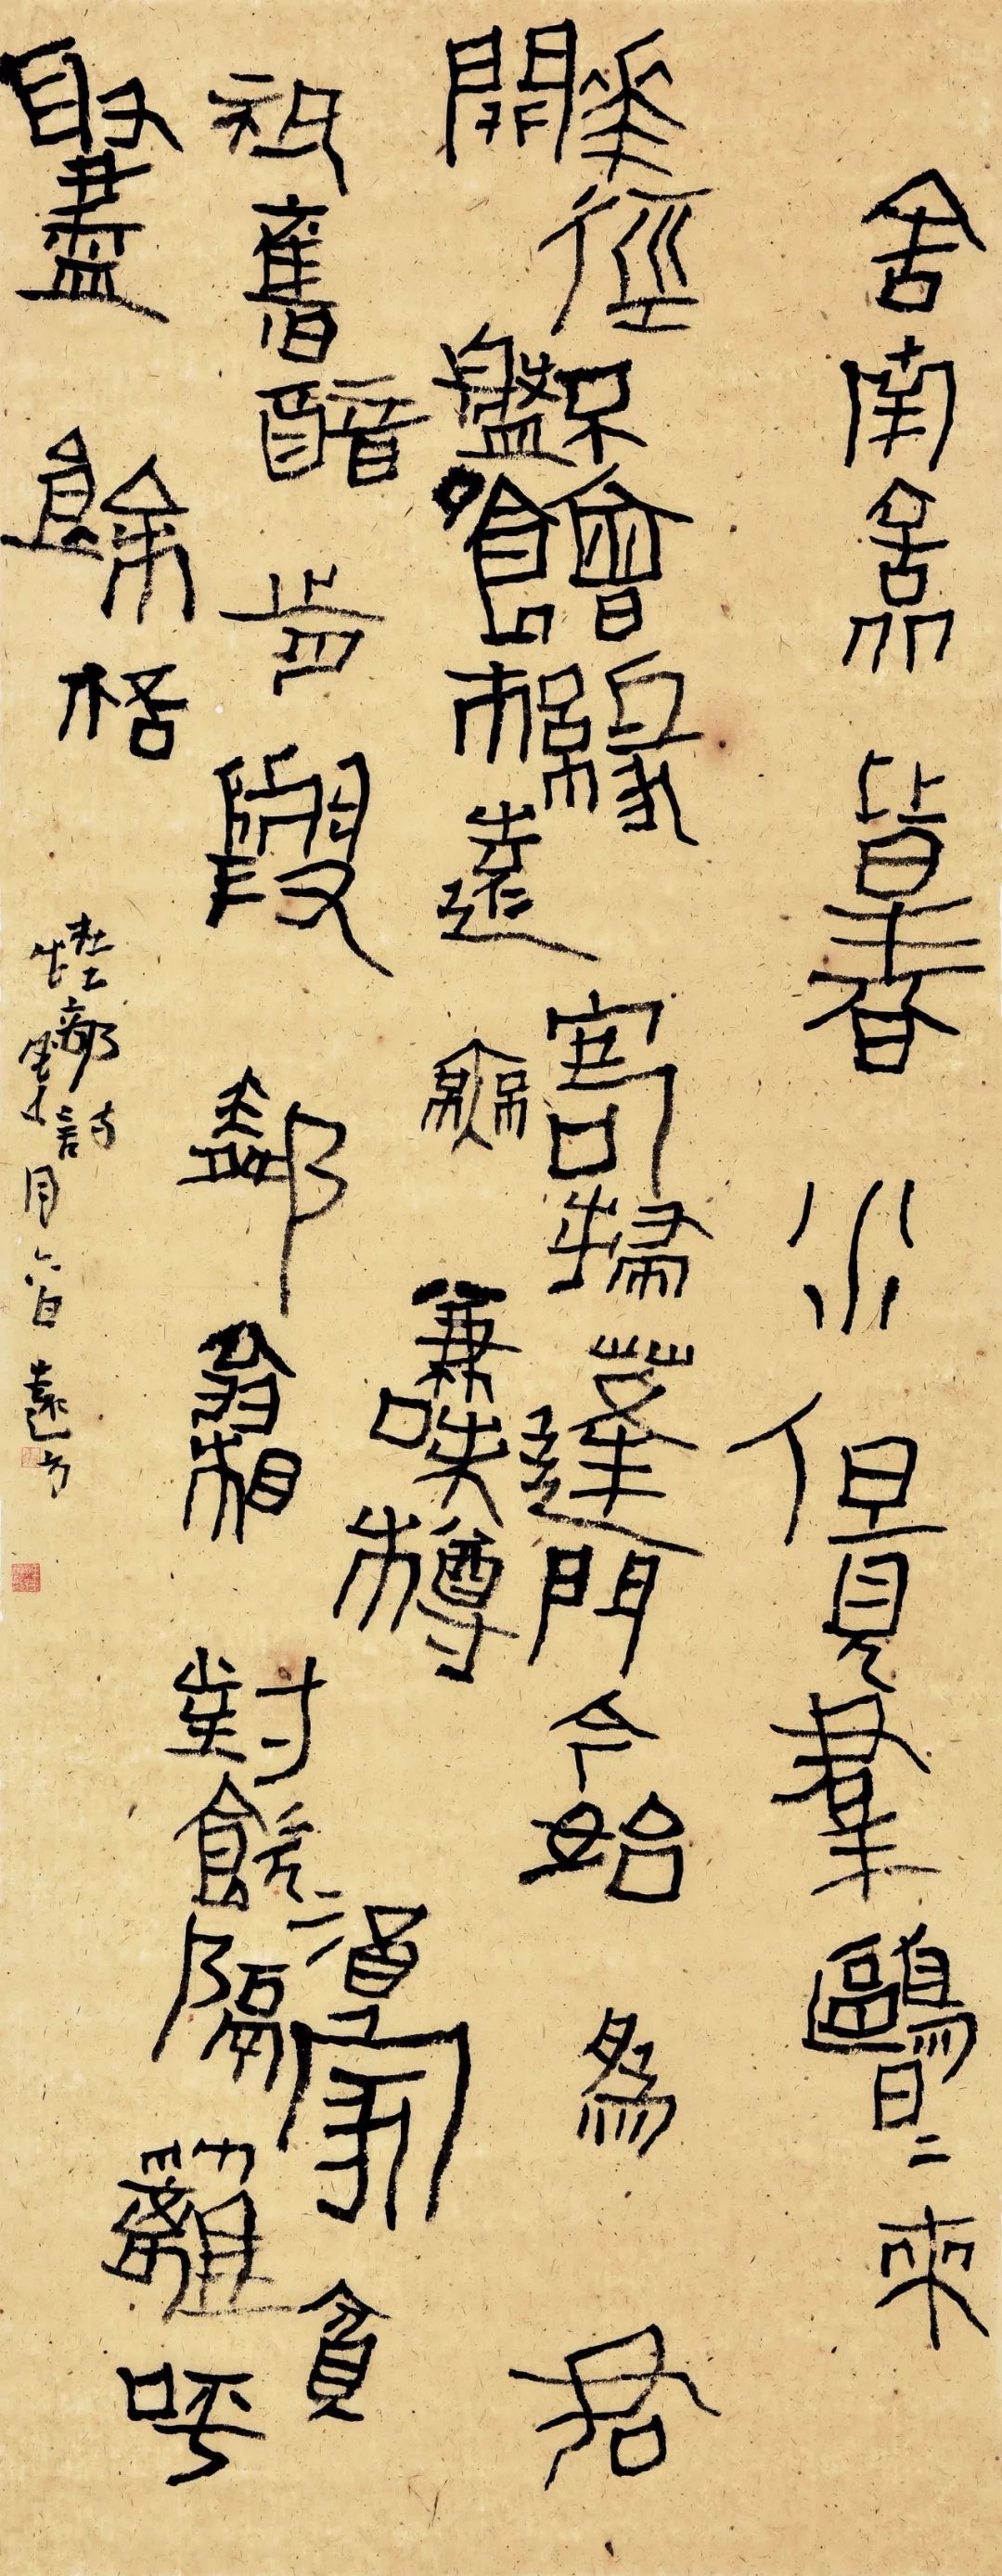 舍南舍北皆春水但見羣鷗日〻來
華徑不曾緣客掃蓬門今始為君
開盤飧市遠無兼味樽酒家貧
祇舊醅肯與鄰翁相對飲隔籬呼
取盡餘杯
杜工部詩月六日遠方